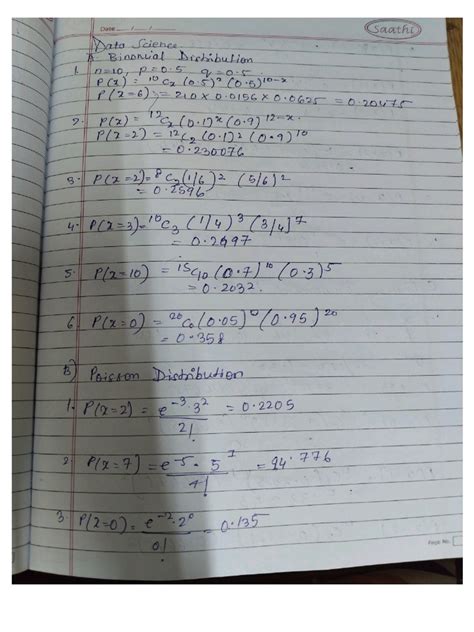 Date __/__/__
Saathi
Data Science
A. Binomial Distribution
1. n=10, p=0.5 q=0.5
P(x) = ¹⁰Cx (0.5)ˣ (0.5)¹⁰⁻ˣ
P(x=6) = 210 × 0.0156 × 0.0625 = 0.20475
2. P(x) = ¹²Cx (0.1)ˣ (0.9)¹²⁻ˣ
P(x=2) = ¹²C₂ (0.1)² (0.9)¹⁰
= 0.230076
3. P(x=2) = ⁸C₂ (1/6)² (5/6)²
= 0.2596
4. P(x=3) = ¹⁰C₃ (1/4)³ (3/4)⁷
= 0.2497
5. P(x=10) = ¹⁵C₁₀ (0.7)¹⁰ (0.3)⁵
= 0.2032
6. P(x=0) = ²⁰C₀ (0.05)⁰ (0.95)²⁰
= 0.358
B) Poisson Distribution
1. P(x=2) = e⁻³·3² / 2! = 0.2205
2. P(x=7) = e⁻⁵·5⁷ / = 94.776
3. P(x=0) = e⁻²·2⁰ / 0! = 0.135
Page No.